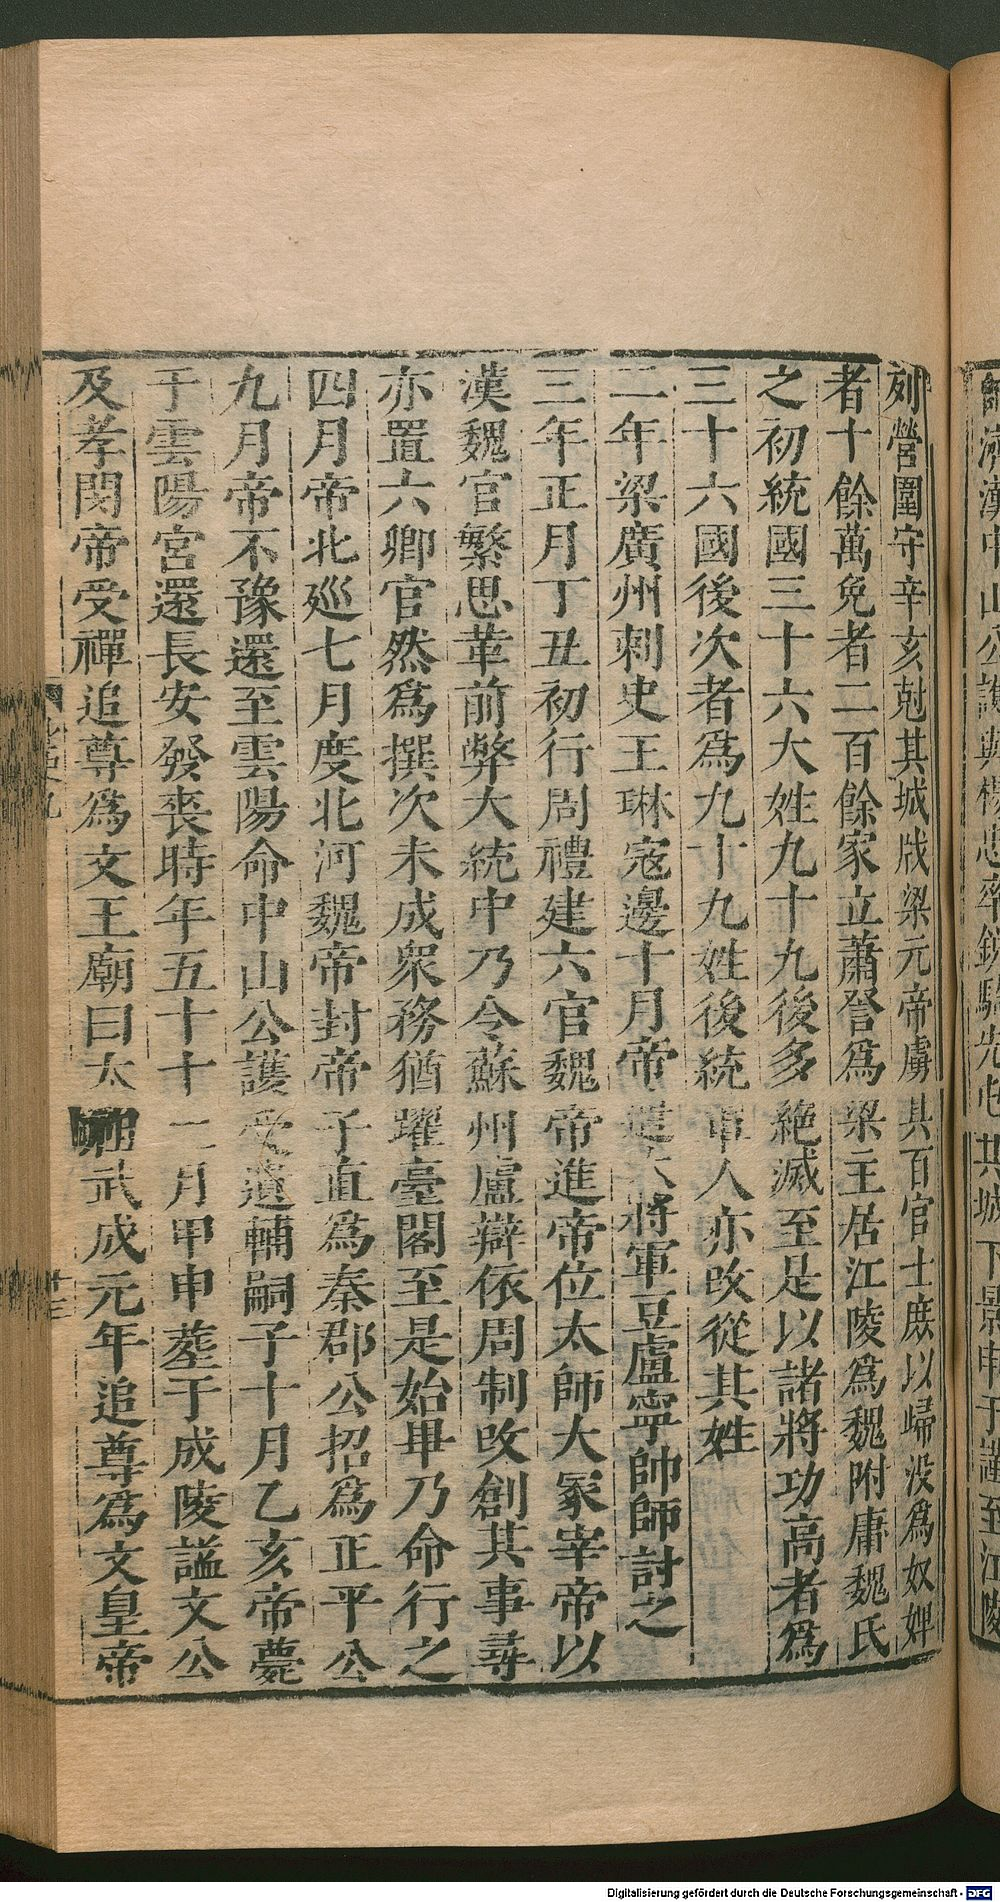 列營圍守辛亥剋其城戕梁元帝虜其百官士庶以歸没為奴婢
者十餘萬免者二百餘家立蕭詧爲梁主居江陵爲魏附庸魏氏
之初統國三十六大姓九十九後多絶滅至是以諸將功高者爲
三十六國後次者爲九十九姓後統軍人亦改從其姓
二年梁廣州刺史王琳寇邊十月帝遣大將軍豆盧寧帥師討之
三年正月丁丑初行周禮建六官魏帝進帝位太師大冢宰帝以
漢魏官繁思革前弊大統中乃令蘇州盧辯依周制改創其事尋
亦置六卿官然爲撰次未成衆務猶躍臺閣至是始畢乃命行之
四月帝北廵七月度北河魏帝封帝子直爲秦郡公招爲正平公
九月帝不豫還至雲陽命中山公護受遺輔嗣子十月乙亥帝薨
于雲陽宮還長安發喪時年五十十二月甲申葬于成陵謚文公
及孝閔帝受禪追尊爲文王廟曰太祖武成元年追尊爲文皇帝
十三
其城下景申于謹至江陵
Digitalisierung gefördert durch die Deutsche Forschungsgemeinschaft - DFG